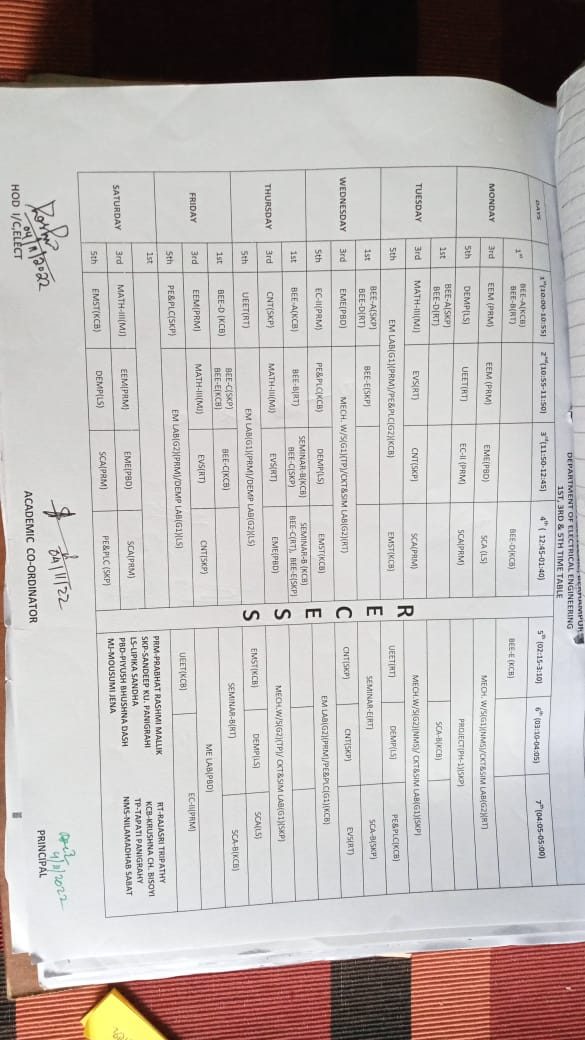 DEPARTMENT OF ELECTRICAL ENGINEERING
1ST, 3RD & 5TH TIME TABLE
DAYS 1st(10:00-10:55) 2nd(10:55-11:50) 3rd(11:50-12:45) 4th( 12:45-01:40) 5th (02:15-3:10) 6th (03:10-04:05) 7th(04:05-05:00)
MONDAY
1st BEE-A(KCB) BEE-B(RT) BEE-D(KCB) BEE-E (KCB)
3rd EEM (PRM) EEM (PRM) EME(PBD) SCA (LS) MECH. W/S(G1)(NMS)/CKT&SIM LAB(G2)(RT)
5th DEMP(LS) UEET(RT) EC-II (PRM) SCA(PRM) PROJECT(PH-1)(SKP)
TUESDAY
1st BEE-A(SKP) BEE-D(RT) SCA-B(KCB)
3rd MATH-III(MJ) EVS(RT) CNT(SKP) SCA(PRM) MECH.W/S(G2)(NMS)/ CKT&SIM LAB(G1)(SKP)
5th EM LAB(G1)(PRM)/PE&PLC(G2)(KCB) EMST(KCB) UEET(RT) DEMP(LS) PE&PLC(KCB)
WEDNESDAY
1st BEE-A(SKP) BEE-D(RT) BEE-E(SKP) SEMINAR-E(RT) SCA-B(SKP)
3rd EME(PBD) MECH. W/S(G1)(TP)/CKT&SIM LAB(G2)(RT) CNT(SKP) CNT(SKP) EVS(RT)
5th EC-II(PRM) PE&PLC(KCB) DEMP(LS) EMST(KCB) EM LAB(G2)(PRM)/PE&PLC(G1)(KCB)
THURSDAY
1st BEE-A(KCB) BEE-B(RT) SEMINAR-B(KCB) BEE-C(SKP) SEMINAR-B (KCB) BEE-C(RT), BEE-E(SKP)
3rd CNT(SKP) MATH-III(MJ) EVS(RT) EME(PBD) MECH.W/S(G2)(TP)/ CKT&SIM LAB(G1)(SKP)
5th UEET(RT) EM LAB(G1)(PRM)/DEMP LAB(G2)(LS) EMST(KCB) DEMP(LS) SCA(LS)
FRIDAY
1st BEE-D (KCB) BEE-C(SKP) BEE-E(KCB) BEE-C(KCB) SEMINAR-B(RT) SCA-B(KCB)
3rd EEM(PRM) MATH-III(MJ) EVS(RT) CNT(SKP) ME LAB(PBD)
5th PE&PLC(SKP) EM LAB(G2)(PRM)/DEMP LAB(G1)(LS) UEET(KCB) EC-II(PRM)
SATURDAY
1st
3rd MATH-III(MJ) EEM(PRM) EME(PBD) SCA(PRM)
5th EMST(KCB) DEMP(LS) SCA(PRM) PE&PLC (SKP)
R
E
C
E
S
S
PRM-PRABHAT RASHMI MALLIK RT-RAJASRI TRIPATHY
SKP-SANDEEP KU. PANIGRAHI KCB-KRUSHNA CH. BISOYI
LS-LIPIKA SANDHA TP-TAPATI PANIGRAHY
PBD-PIYUSH BHUSHNA DASH NMS-NILAMADHAB SABAT
MJ-MOUSUMI JENA
04/11/2022
04/11/22
4/11/2022
HOD I/C,ELECT ACADEMIC CO-ORDINATOR PRINCIPAL